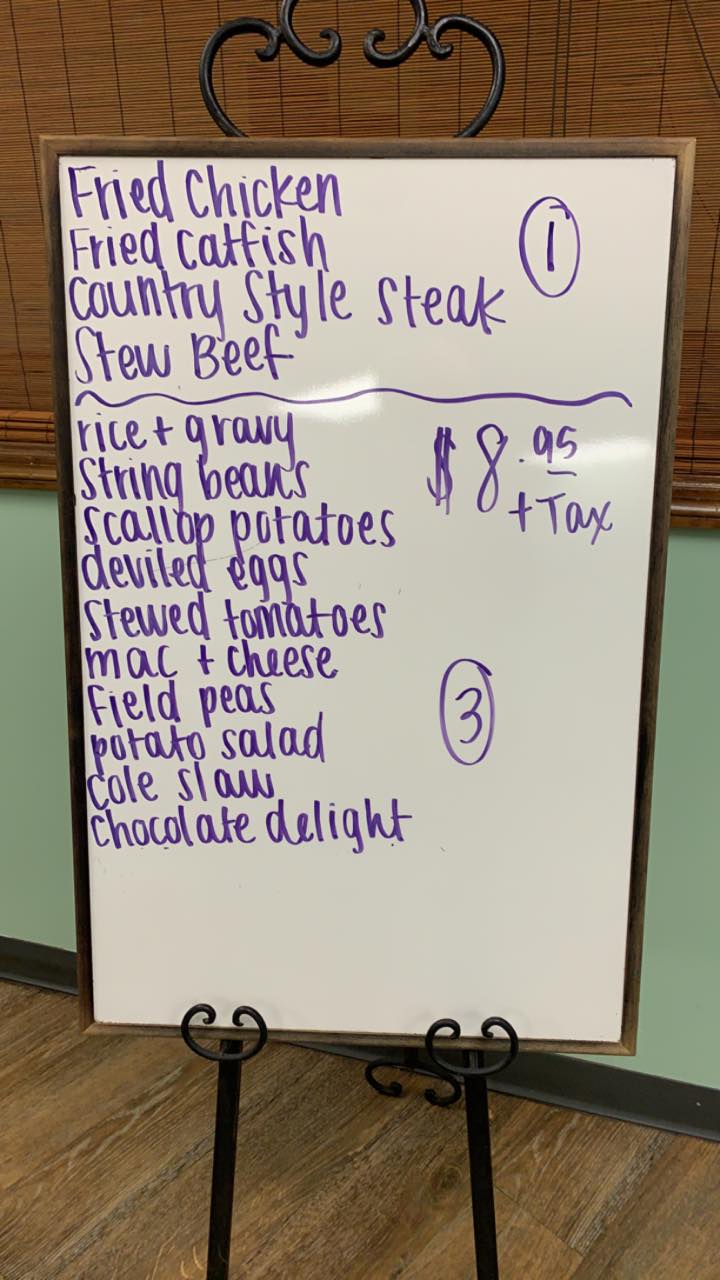 Fried Chicken
Fried Catfish
1
Country Style Steak
Stew Beef
rice + gravy
$8.95
String beans
+ Tax
Scallop potatoes
deviled eggs
Stewed tomatoes
mac + cheese
Field peas
3
potato salad
cole slaw
chocolate delight